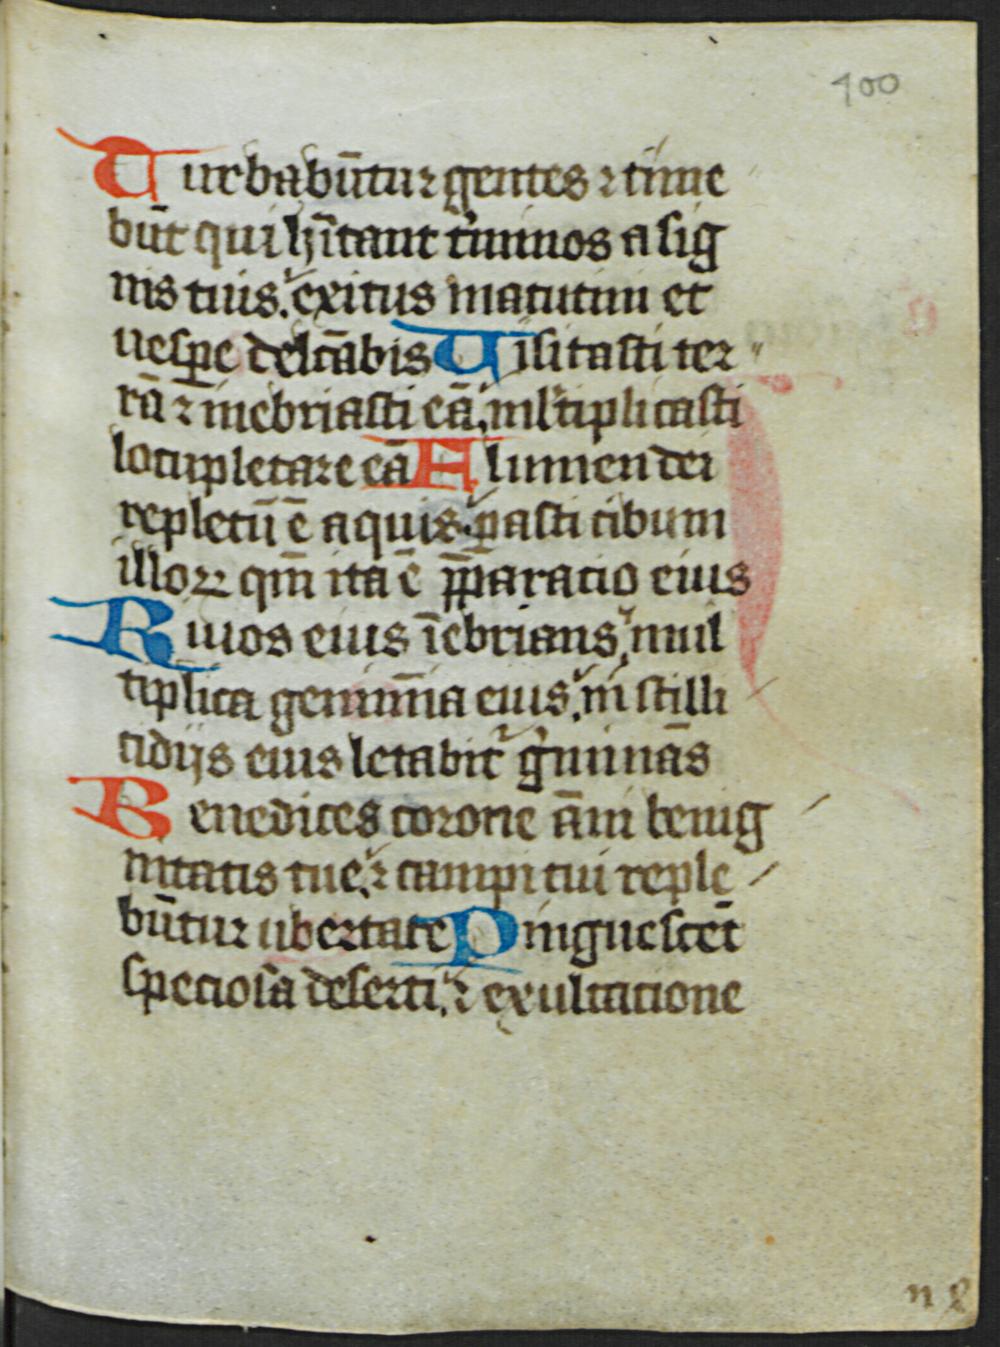 100
Turbabūtur gentes ⁊ time
būt qui hītant t̄minos a sig
nis tuis. exitus matutini et
uesꝑe delc̄abis Uisitasti ter
rā ⁊ inebriasti eā, ml̄tiplicasti
locupletare eā Flumen dei
repletū ē aquis. ꝑasti cibum
illoꝝ qm̄ ita ē p̄paratio eius
Riuos eius īebrians, mul
tiplica genimīa eius, in stilli
cidijs eius letabit᷑ g̓minās
Benedices corone āni benig
nitatis tue, ⁊ campi tui reple
būtur ubertate Pinguescēt
speciosa deserti, ⁊ exultatione